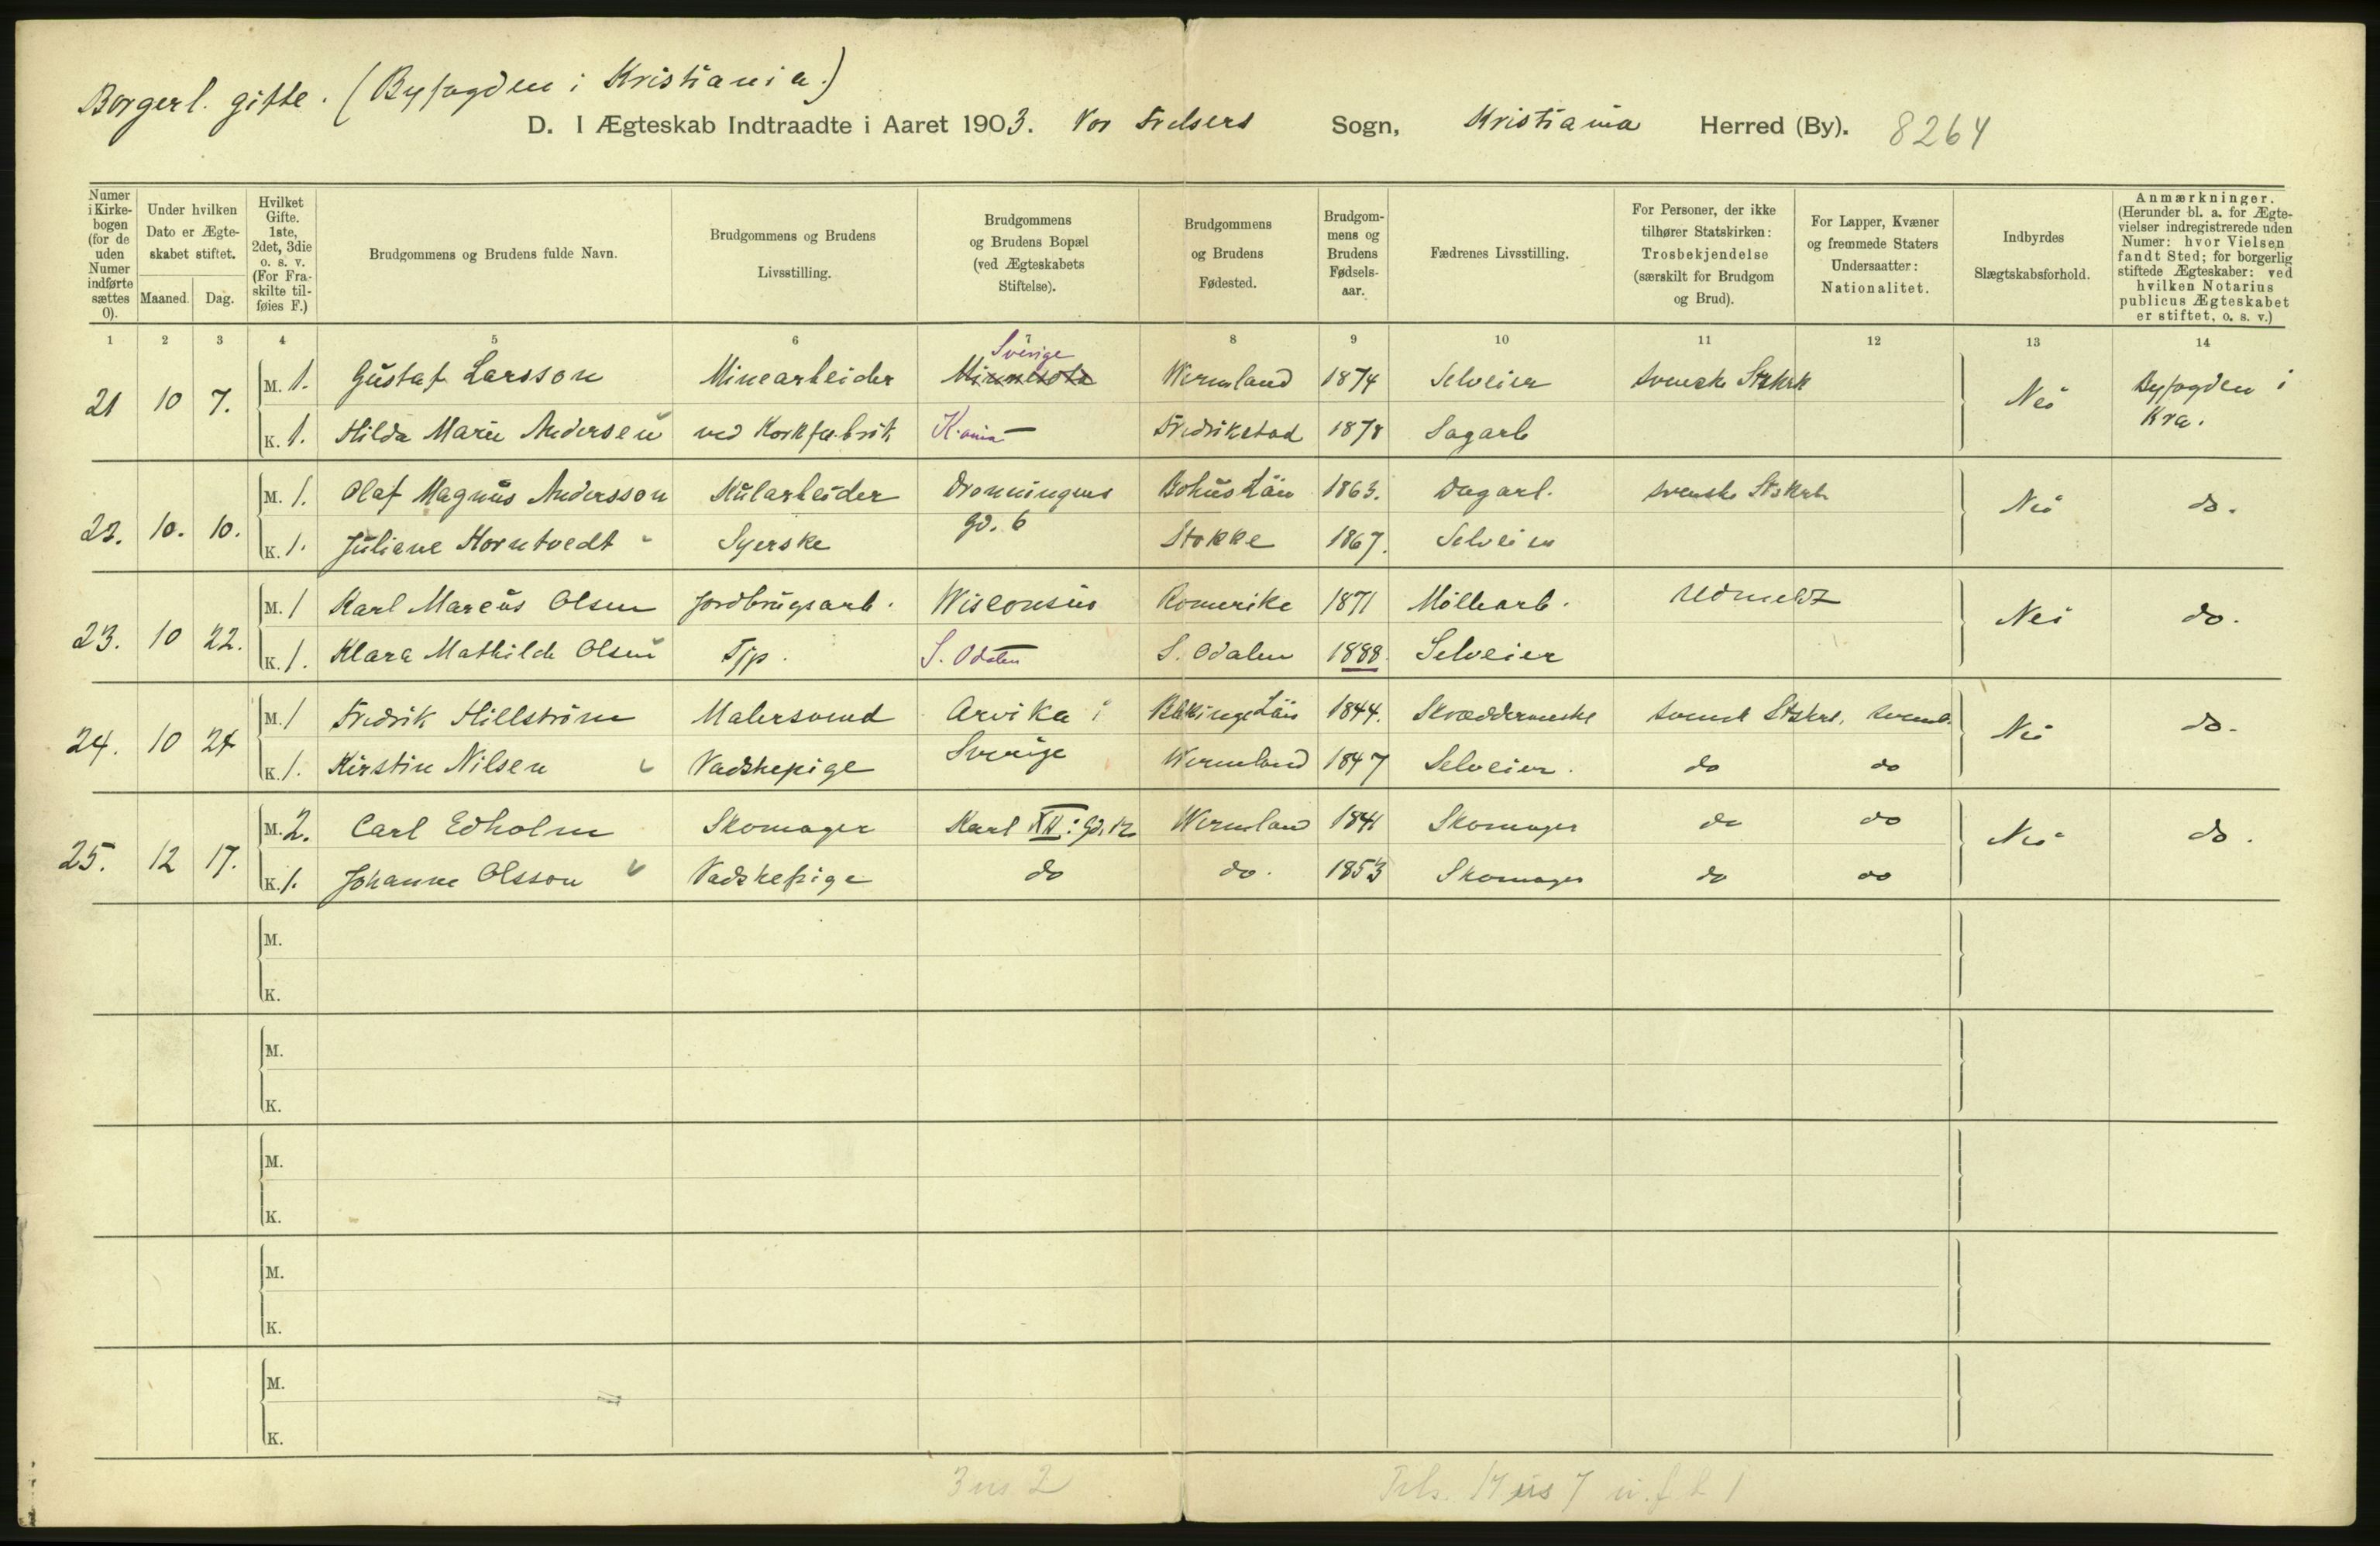 Borgerl. gifte. (Byfogden i Kristiania.)
D. I Ægteskab Indtraadte i Aaret 1903. Vor Frelsers Sogn, Kristiania Herred (By). 8264
Numer i Kirkebogen (for de uden Numer indførte sættes 0).
Under hvilken Dato er Ægteskabet stiftet.
Maaned. Dag.
Hvilket Gifte. 1ste, 2det, 3die o. s. v. (For Fraskilte tilføies F.)
Brudgommens og Brudens fulde Navn.
Brudgommens og Brudens Livsstilling.
Brudgommens og Brudens Bopæl (ved Ægteskabets Stiftelse).
Brudgommens og Brudens Fødested.
Brudgommens og Brudens Fødselsaar.
Fædrenes Livsstilling.
For Personer, der ikke tilhører Statskirken: Trosbekjendelse (særskilt for Brudgom og Brud).
For Lapper, Kvæner og fremmede Staters Undersaatter: Nationalitet.
Indbyrdes Slægtskabsforhold.
Anmærkninger. (Herunder bl. a. for Ægtevielser indregistrerede uden Numer: hvor Vielsen fandt Sted; for borgerlig stiftede Ægteskaber: ved hvilken Notarius publicus Ægteskabet er stiftet, o. s. v.)
1 2 3 4 5 6 7 8 9 10 11 12 13 14
21 10 7. M. 1. Gustaf Larsson Minearbeider Minnesota Sverige Wermland 1874 Selveier svenske Stskrk Nei Byfogden i Kra.
K. 1. Hilda Marie Andersen ved Korkfabrik K.ania Fredrikstad 1878 Sagarb
22. 10. 10. M. 1. Olaf Magnus Andersson Kularbeider Dronningens gd. 6 Bohus Län 1863. Dagarb. svenske Stskrk Nei do.
K. 1. Juliene Horntvedt Syerske Stokke 1867. Selveier
23. 10 22. M. 1 Karl Marcus Olsen Jordbrugsarb. Wisconsin Romerike 1871 Møllearb. Udmeldt Nei do.
K. 1. Klara Mathilde Olsen Tjp. S. Odalen S. Odalen 1888. Selveier
24. 10 24 M. 1 Fredrik Hillström Malersvend Arvika i Sverige Blekinge Län 1844. Skræddermester svensk Stskrk. svensk Nei do.
K. 1. Kirstin Nilsen Vadskepige Wermland 1847 Selveier. do do
25. 12 17. M. 2. Carl Edholm Skomager Karl XII: gd. 12 Wermland 1841 Skomager do do Nei do.
K. 1. Johanne Olsson Vadskepige do do. 1853 Skomager do do
M.
K.
M.
K.
M.
K.
M.
K.
M.
K.